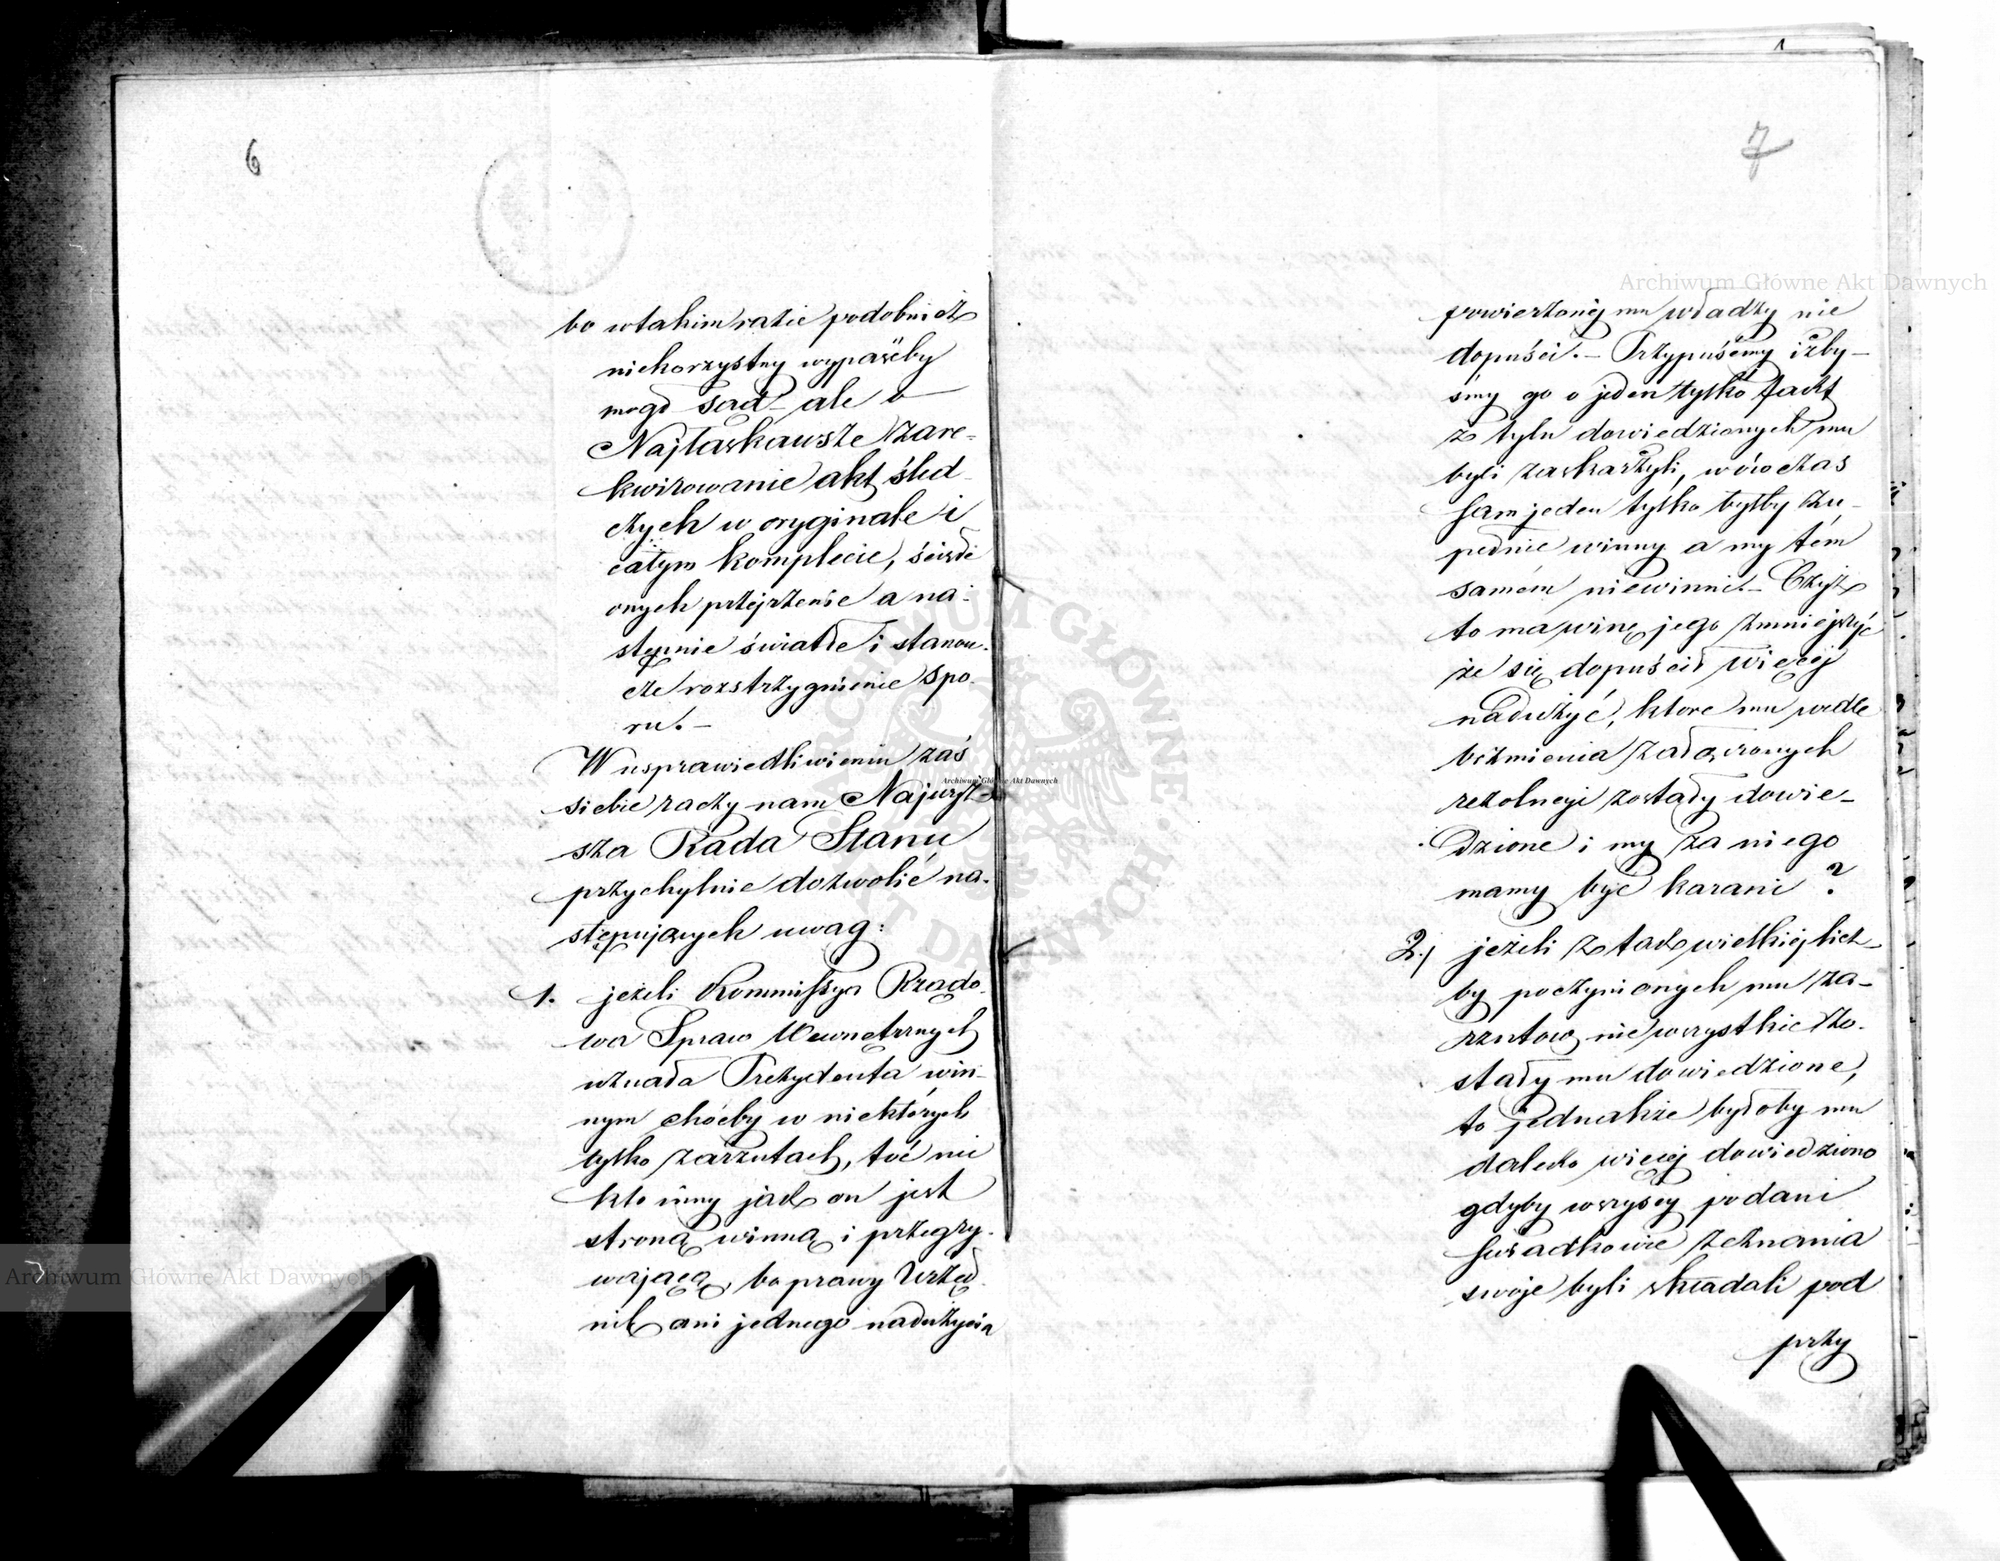 6
bo w takim razie podobnież
niekorzystny wypaśćby
mógł sąd – ale o
Najłaskawsze zare-
kwirowanie akt śled-
czych w oryginale i
całym komplecie, ścisłe
onych przejrzenie a na-
stępnie światłe i stanow-
cze rozstrzygnienie spo-
ru. –
W usprawiedliwieniu zaś
siebie raczy nam Najwyż-
sza Rada Stanu
przychylnie dozwolić na-
stępujących uwag:
1. jeżeli Kommissya Rządo-
wa Spraw Wewnętrznych
uznała Prezydenta win-
nym choćby w niektórych
tylko zarzutach, toć nie
kto inny jak on jest
stroną winną i przegry-
wającą, bo prawy Urzęd-
nik ani jednego nadużycia
7
powierzonéj mu władzy nie
dopuści. – Przypuśćmy iżby-
śmy go o jeden tylko fackt
z tylu dowiedzionych mu
byli zaskarżyli, wówczas
sam jeden tylko byłby zu-
pełnie winny a my tém
samém niewinni. – Czyż
to ma winę jego zmniejszyć
że się dopuścił więcéj
nadużyć, które mu wedle
brzmienia załączonych
rezolucyi zostały dowie-
dzione i my za niego
mamy być karani?
2./ jeżeli z tak wielkiéj licz-
by poczynionych mu za-
rzutów nie wszystkie zo-
stały mu dowiedzione,
to jednakże byłoby mu
daleko więcéj dowiedziono
gdyby wszyscy podani
świadkowie zeznania
swoje byli składali pod
przy
Archiwum Główne Akt Dawnych
Archiwum Główne Akt Dawnych
Archiwum Główne Akt Dawnych
ARCHIWUM GŁÓWNE AKT DAWNYCH